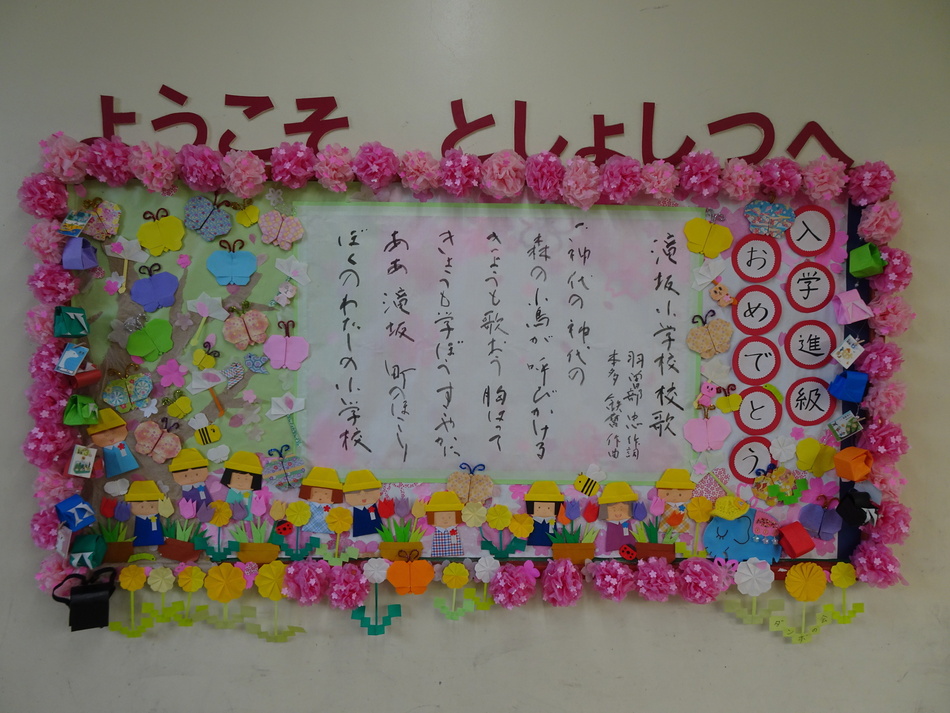 ようこそ としょしつへ
入学進級
おめでとう
滝坂小学校 校歌
羽曽部 忠 作詞
本多 鉄麿 作曲
一、神代の神代の
森の小鳥が 呼びかける
きょうも歌おう 胸はって
きょうも学ぼう すやかに
ああ 滝坂 町のほこり
ぼくのわたしの小学校